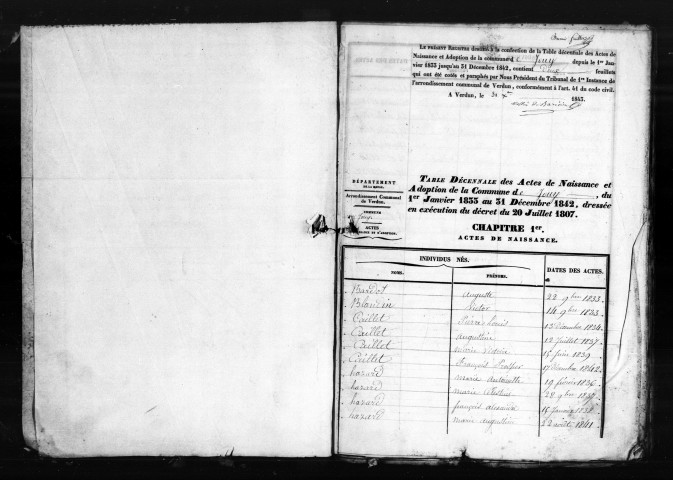 Le présent Registre destiné à la confection de la Table décennale des Actes de
Naissance et Adoption de la commune de Jouy depuis le 1er Jan-
vier 1833 jusqu'au 31 Décembre 1842, contient Deux feuillets
qui ont été cotés et paraphés par Nous Président du Tribunal de 1re Instance de
l'arrondissement communal de Verdun, conformément à l'art. 41 du code civil.
A Verdun, le 30 1843.
DÉPARTEMENT
DE LA MEUSE.
Arrondissement Communal
de Verdun.
COMMUNE
de Jouy
ACTES
DE NAISSANCE ET D'ADOPTION.
Table Décennale des Actes de Naissance et
Adoption de la Commune de Jouy, du
1er Janvier 1833 au 31 Décembre 1842, dressée
en exécution du décret du 20 Juillet 1807.
CHAPITRE 1er.
ACTES DE NAISSANCE.
INDIVIDUS NÉS.
NOMS. PRÉNOMS. DATES DES ACTES.
Bardot Auguste 22 9bre 1833.
Blandin Victor 14 9bre 1833.
Caillet Pierre Louis 13 Décembre 1834.
Caillet Augustine 12 Juillet 1837.
Caillet Marie 15 Juin 1839.
Caillet François Prosper 17 Décembre 1842.
hazard marie antoinette 19 février 1836.
hazard marie 28 9bre 1837.
hazard françois 15 Janvier
hazard marie augustine 22 août 1841.